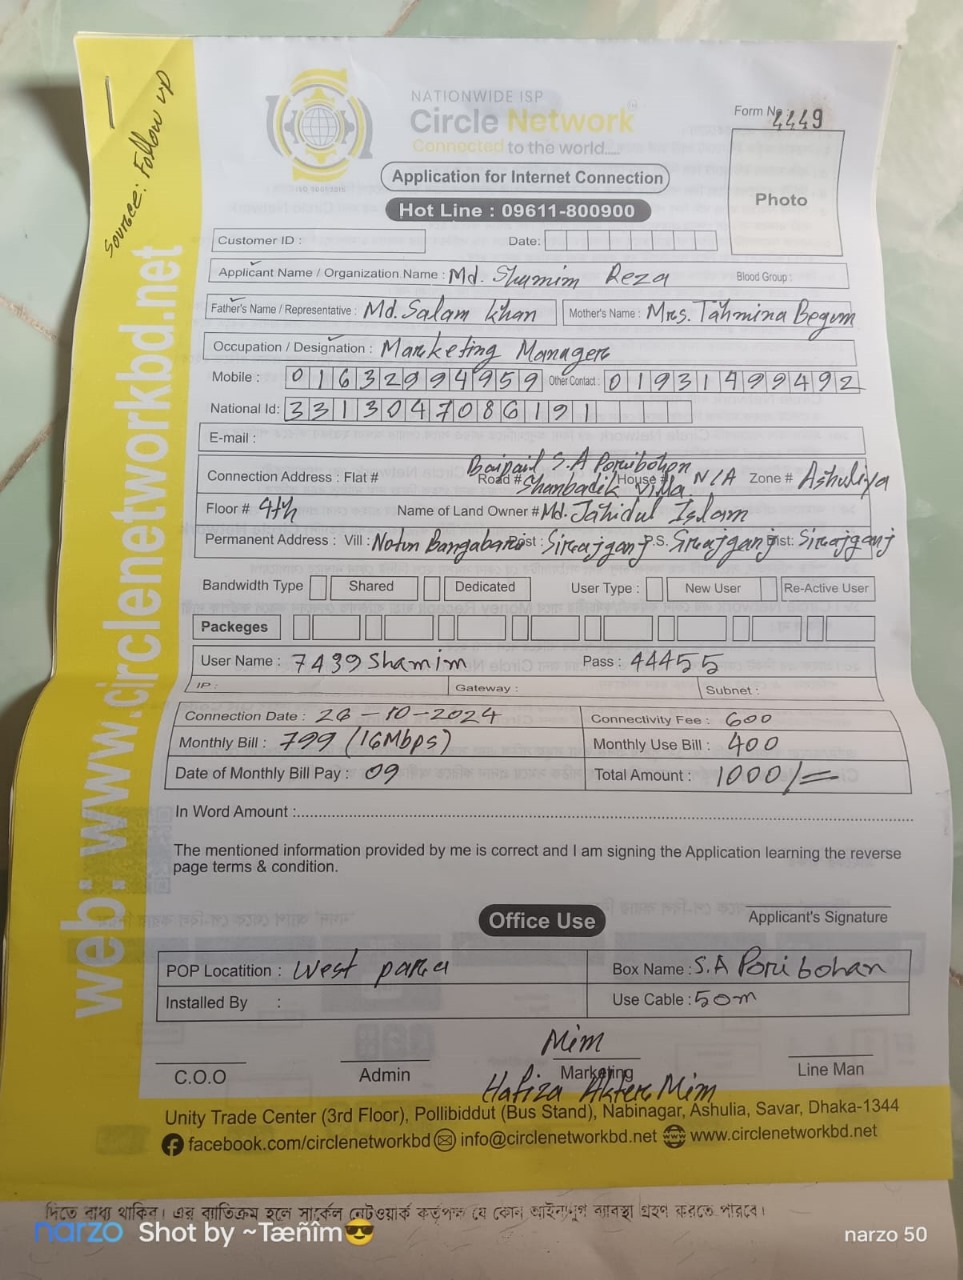 Source: Follow up
web: www.circlenetworkbd.net
NATIONWIDE ISP
Circle Network
Connected to the world....
ISO 9001:2015
Form No: 4449
Application for Internet Connection
Hot Line : 09611-800900
Photo
Customer ID :
Date:
Applicant Name / Organization Name : Md. Shamim Reza Blood Group :
Father's Name / Representative : Md. Salam Khan Mother's Name : Mrs. Tahmina Begum
Occupation / Designation : Marketing Manager
Mobile : 01632994959 Other Contact : 01931499492
National Id: 3313047086191
E-mail :
Connection Address : Flat # Road # House # N/A Zone # Ashuliya
Baipail S.A Poribohon
Shanbadik Villa
Floor # 4th Name of Land Owner # Md. Jahidul Islam
Permanent Address : Vill : Notun Bangabari Post : Sirajganj P.S. Sirajganj Dist: Sirajganj
Bandwidth Type Shared Dedicated User Type : New User Re-Active User
Packeges
User Name : 7439 Shamim Pass : 44455
IP : Gateway : Subnet :
Connection Date : 26-10-2024 Connectivity Fee : 600
Monthly Bill : 799 (16Mbps) Monthly Use Bill : 400
Date of Monthly Bill Pay : 09 Total Amount : 1000/=
In Word Amount :
The mentioned information provided by me is correct and I am signing the Application learning the reverse
page terms & condition.
Office Use
Applicant's Signature
POP Locatition : West para Box Name : S.A Poribohan
Installed By : Use Cable : 50m
Mim
C.O.O Admin Marketing Line Man
Hafiza Akter Mim
Unity Trade Center (3rd Floor), Pollibiddut (Bus Stand), Nabinagar, Ashulia, Savar, Dhaka-1344
facebook.com/circlenetworkbd info@circlenetworkbd.net www.circlenetworkbd.net
দিতে বাধ্য থাকিব। এর ব্যতিক্রম হলে সার্কেল নেটওয়ার্ক কর্তৃপক্ষ যে কোন আইনানুগ ব্যবস্থা গ্রহণ করতে পারবে।
narzo Shot by ~Tæñîm😎
narzo 50